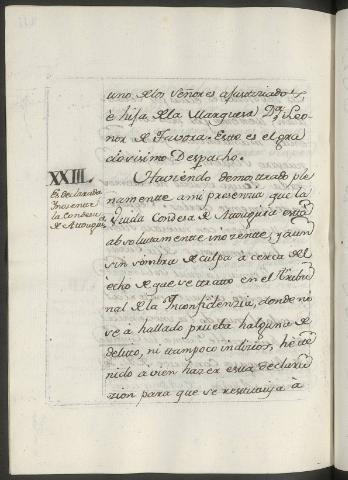 uno de los Señores ajusticiados
è hija, de la Marquesa Dª. Leo-
nor de Tavora. Este es el gra
ciosisimo Despacho.
XXIII.
Es declarada
Inocente
la Condesa
de Atouguia
Haviendo demostrado ple
namente a mi presencia que la
Viuda Condesa de Atouguia està
absolutamente inozente, y aun
sin sombra de culpa à cerca del
echo de que se trato en el Tribu
nal de la Inconfidenzia, donde no
se à hallado prueba halguna de
delito, ni tampoco indizios, he te
nido à vien hazer esta declara
zion para que se restituiya à